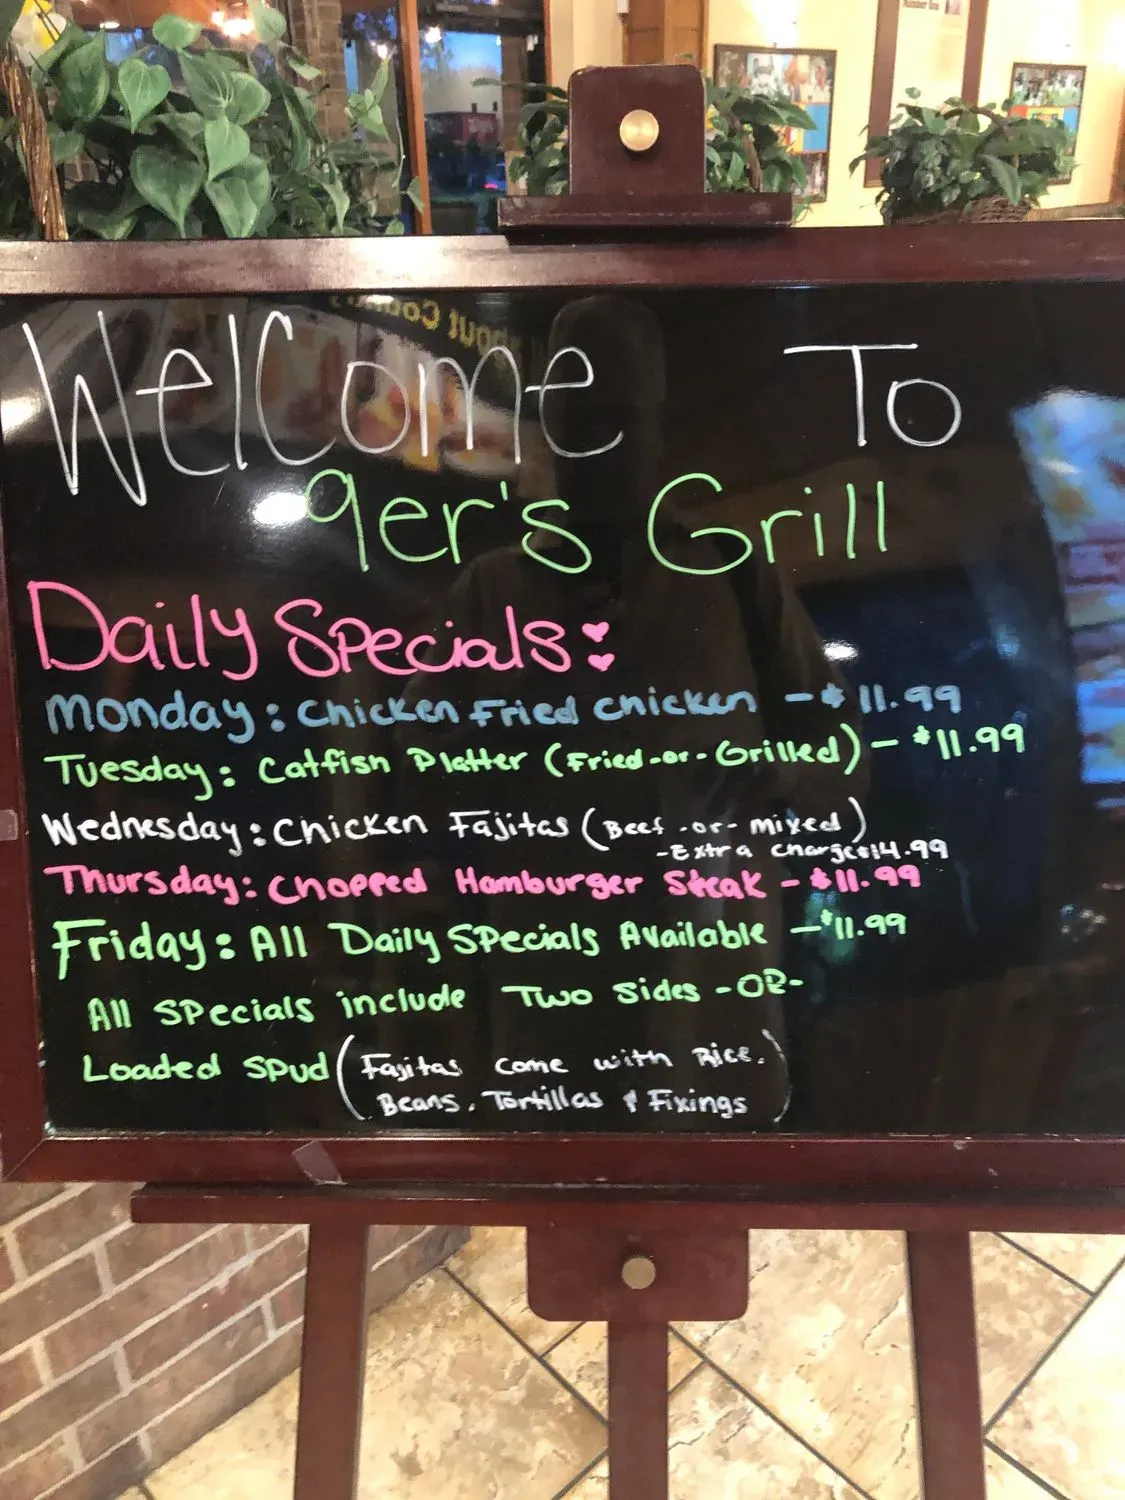 Number One
Welcome To
9er's Grill
Daily Specials:
Monday: Chicken Fried Chicken - $11.99
Tuesday: Catfish Platter (Fried-or-Grilled) - $11.99
Wednesday: Chicken Fajitas (Beef -or- Mixed)
-Extra Charge $14.99
Thursday: Chopped Hamburger Steak - $11.99
Friday: All Daily Specials Available - $11.99
All Specials include Two Sides -OR-
Loaded Spud (Fajitas come with Rice.
Beans, Tortillas & Fixings)